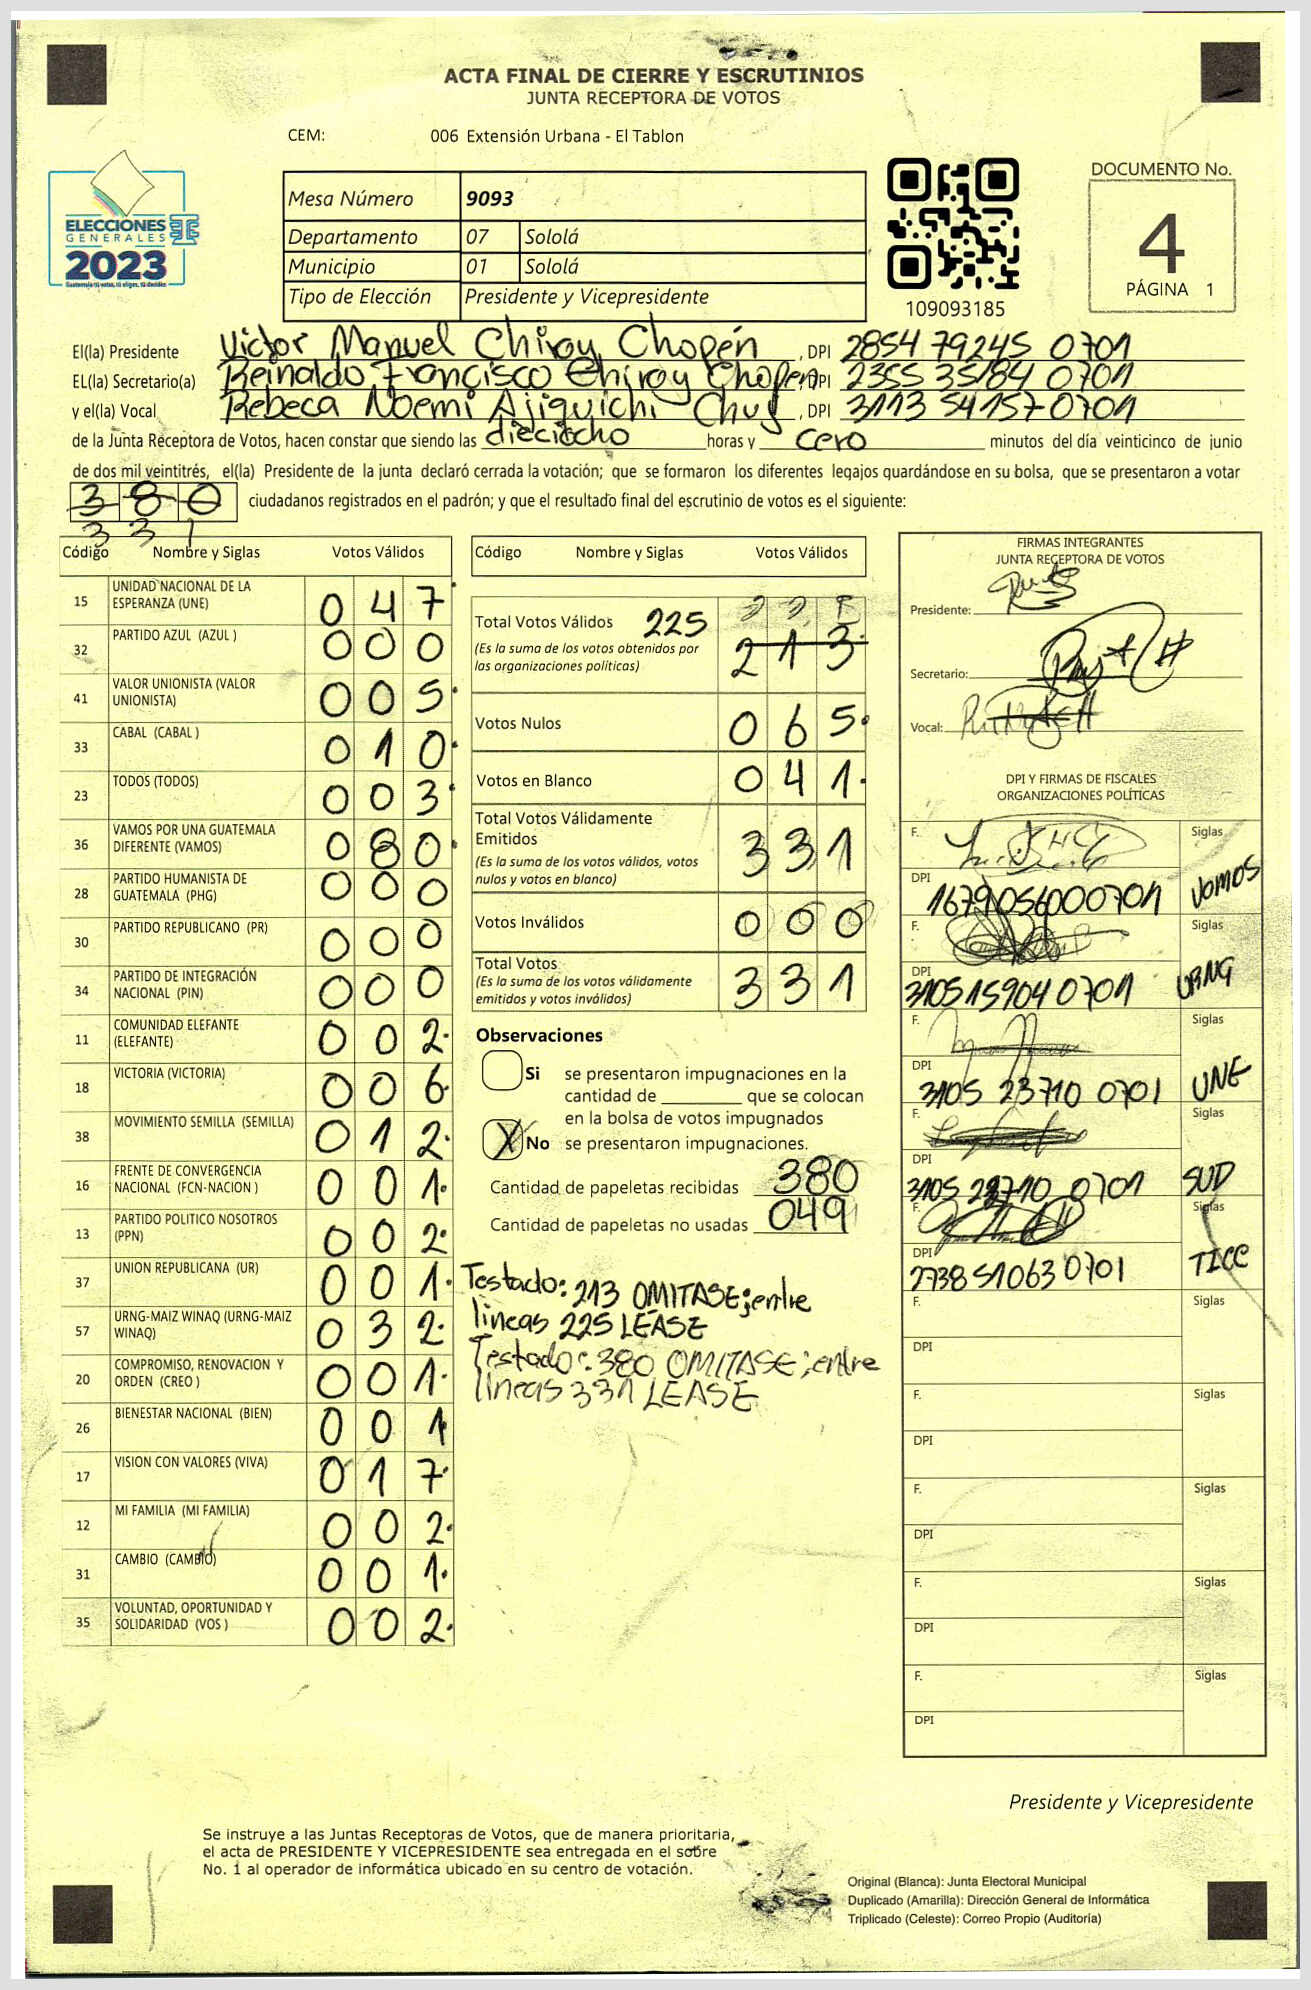 ACTA FINAL DE CIERRE Y ESCRUTINIOS
JUNTA RECEPTORA DE VOTOS
CEM: 006 Extensión Urbana - El Tablon
ELECCIONES
GENERALES
2023
Guatemala tú votas, tú eliges, tú decides
Mesa Número 9093
Departamento 07 Sololá
Municipio 01 Sololá
Tipo de Elección Presidente y Vicepresidente
109093185
DOCUMENTO No.
4
PÁGINA 1
El(la) Presidente Victor Manuel Chiroy Chopén, DPI 2854 79245 0701
EL(la) Secretario(a) Reinaldo Francisco Chiroy Chopén, DPI 2355 35184 0701
y el(la) Vocal Rebeca Noemi Ajiquichi Chuj, DPI 3113 54157 0701
de la Junta Receptora de Votos, hacen constar que siendo las dieciocho horas y cero minutos del día veinticinco de junio
de dos mil veintitrés, el(la) Presidente de la junta declaró cerrada la votación; que se formaron los diferentes legajos quardándose en su bolsa, que se presentaron a votar
380 ciudadanos registrados en el padrón; y que el resultado final del escrutinio de votos es el siguiente:
331
Código Nombre y Siglas Votos Válidos
15 UNIDAD NACIONAL DE LA ESPERANZA (UNE) 047
32 PARTIDO AZUL (AZUL ) 000
41 VALOR UNIONISTA (VALOR UNIONISTA) 005
33 CABAL (CABAL ) 010
23 TODOS (TODOS) 003
36 VAMOS POR UNA GUATEMALA DIFERENTE (VAMOS) 080
28 PARTIDO HUMANISTA DE GUATEMALA (PHG) 000
30 PARTIDO REPUBLICANO (PR) 000
34 PARTIDO DE INTEGRACIÓN NACIONAL (PIN) 000
11 COMUNIDAD ELEFANTE (ELEFANTE) 002
18 VICTORIA (VICTORIA) 006
38 MOVIMIENTO SEMILLA (SEMILLA) 012
16 FRENTE DE CONVERGENCIA NACIONAL (FCN-NACION ) 001
13 PARTIDO POLITICO NOSOTROS (PPN) 002
37 UNION REPUBLICANA (UR) 001
57 URNG-MAIZ WINAQ (URNG-MAIZ WINAQ) 032
20 COMPROMISO, RENOVACION Y ORDEN (CREO ) 001
26 BIENESTAR NACIONAL (BIEN) 001
17 VISION CON VALORES (VIVA) 017
12 MI FAMILIA (MI FAMILIA) 002
31 CAMBIO (CAMBIO) 001
35 VOLUNTAD, OPORTUNIDAD Y SOLIDARIDAD (VOS ) 002
Código Nombre y Siglas Votos Válidos
Total Votos Válidos 225 213
(Es la suma de los votos obtenidos por
las organizaciones políticas)
Votos Nulos 065
Votos en Blanco 041
Total Votos Válidamente
Emitidos 331
(Es la suma de los votos válidos, votos
nulos y votos en blanco)
Votos Inválidos 000
Total Votos 331
(Es la suma de los votos válidamente
emitidos y votos inválidos)
Observaciones
Si se presentaron impugnaciones en la
cantidad de ________ que se colocan
en la bolsa de votos impugnados
X No se presentaron impugnaciones.
Cantidad de papeletas recibidas 380
Cantidad de papeletas no usadas 049
Testado: 213 OMITASE; entre
lineas 225 LEASE
Testado: 380 OMITASE; entre
lineas 331 LEASE
FIRMAS INTEGRANTES
JUNTA RECEPTORA DE VOTOS
Presidente:
Secretario:
Vocal:
DPI Y FIRMAS DE FISCALES
ORGANIZACIONES POLÍTICAS
F. Siglas
DPI 1679056000701 VAMOS
F. Siglas
DPI 3105159040701 URNG
F. Siglas
DPI 3105 23710 0701 UNE
F. Siglas
DPI 3105 23710 0701 SUD
F. Siglas
DPI 2738510630701 TICC
F. Siglas
DPI
F. Siglas
DPI
F. Siglas
DPI
F. Siglas
DPI
F. Siglas
DPI
Presidente y Vicepresidente
Se instruye a las Juntas Receptoras de Votos, que de manera prioritaria,
el acta de PRESIDENTE Y VICEPRESIDENTE sea entregada en el sobre
No. 1 al operador de informática ubicado en su centro de votación.
Original (Blanca): Junta Electoral Municipal
Duplicado (Amarilla): Dirección General de Informática
Triplicado (Celeste): Correo Propio (Auditoría)